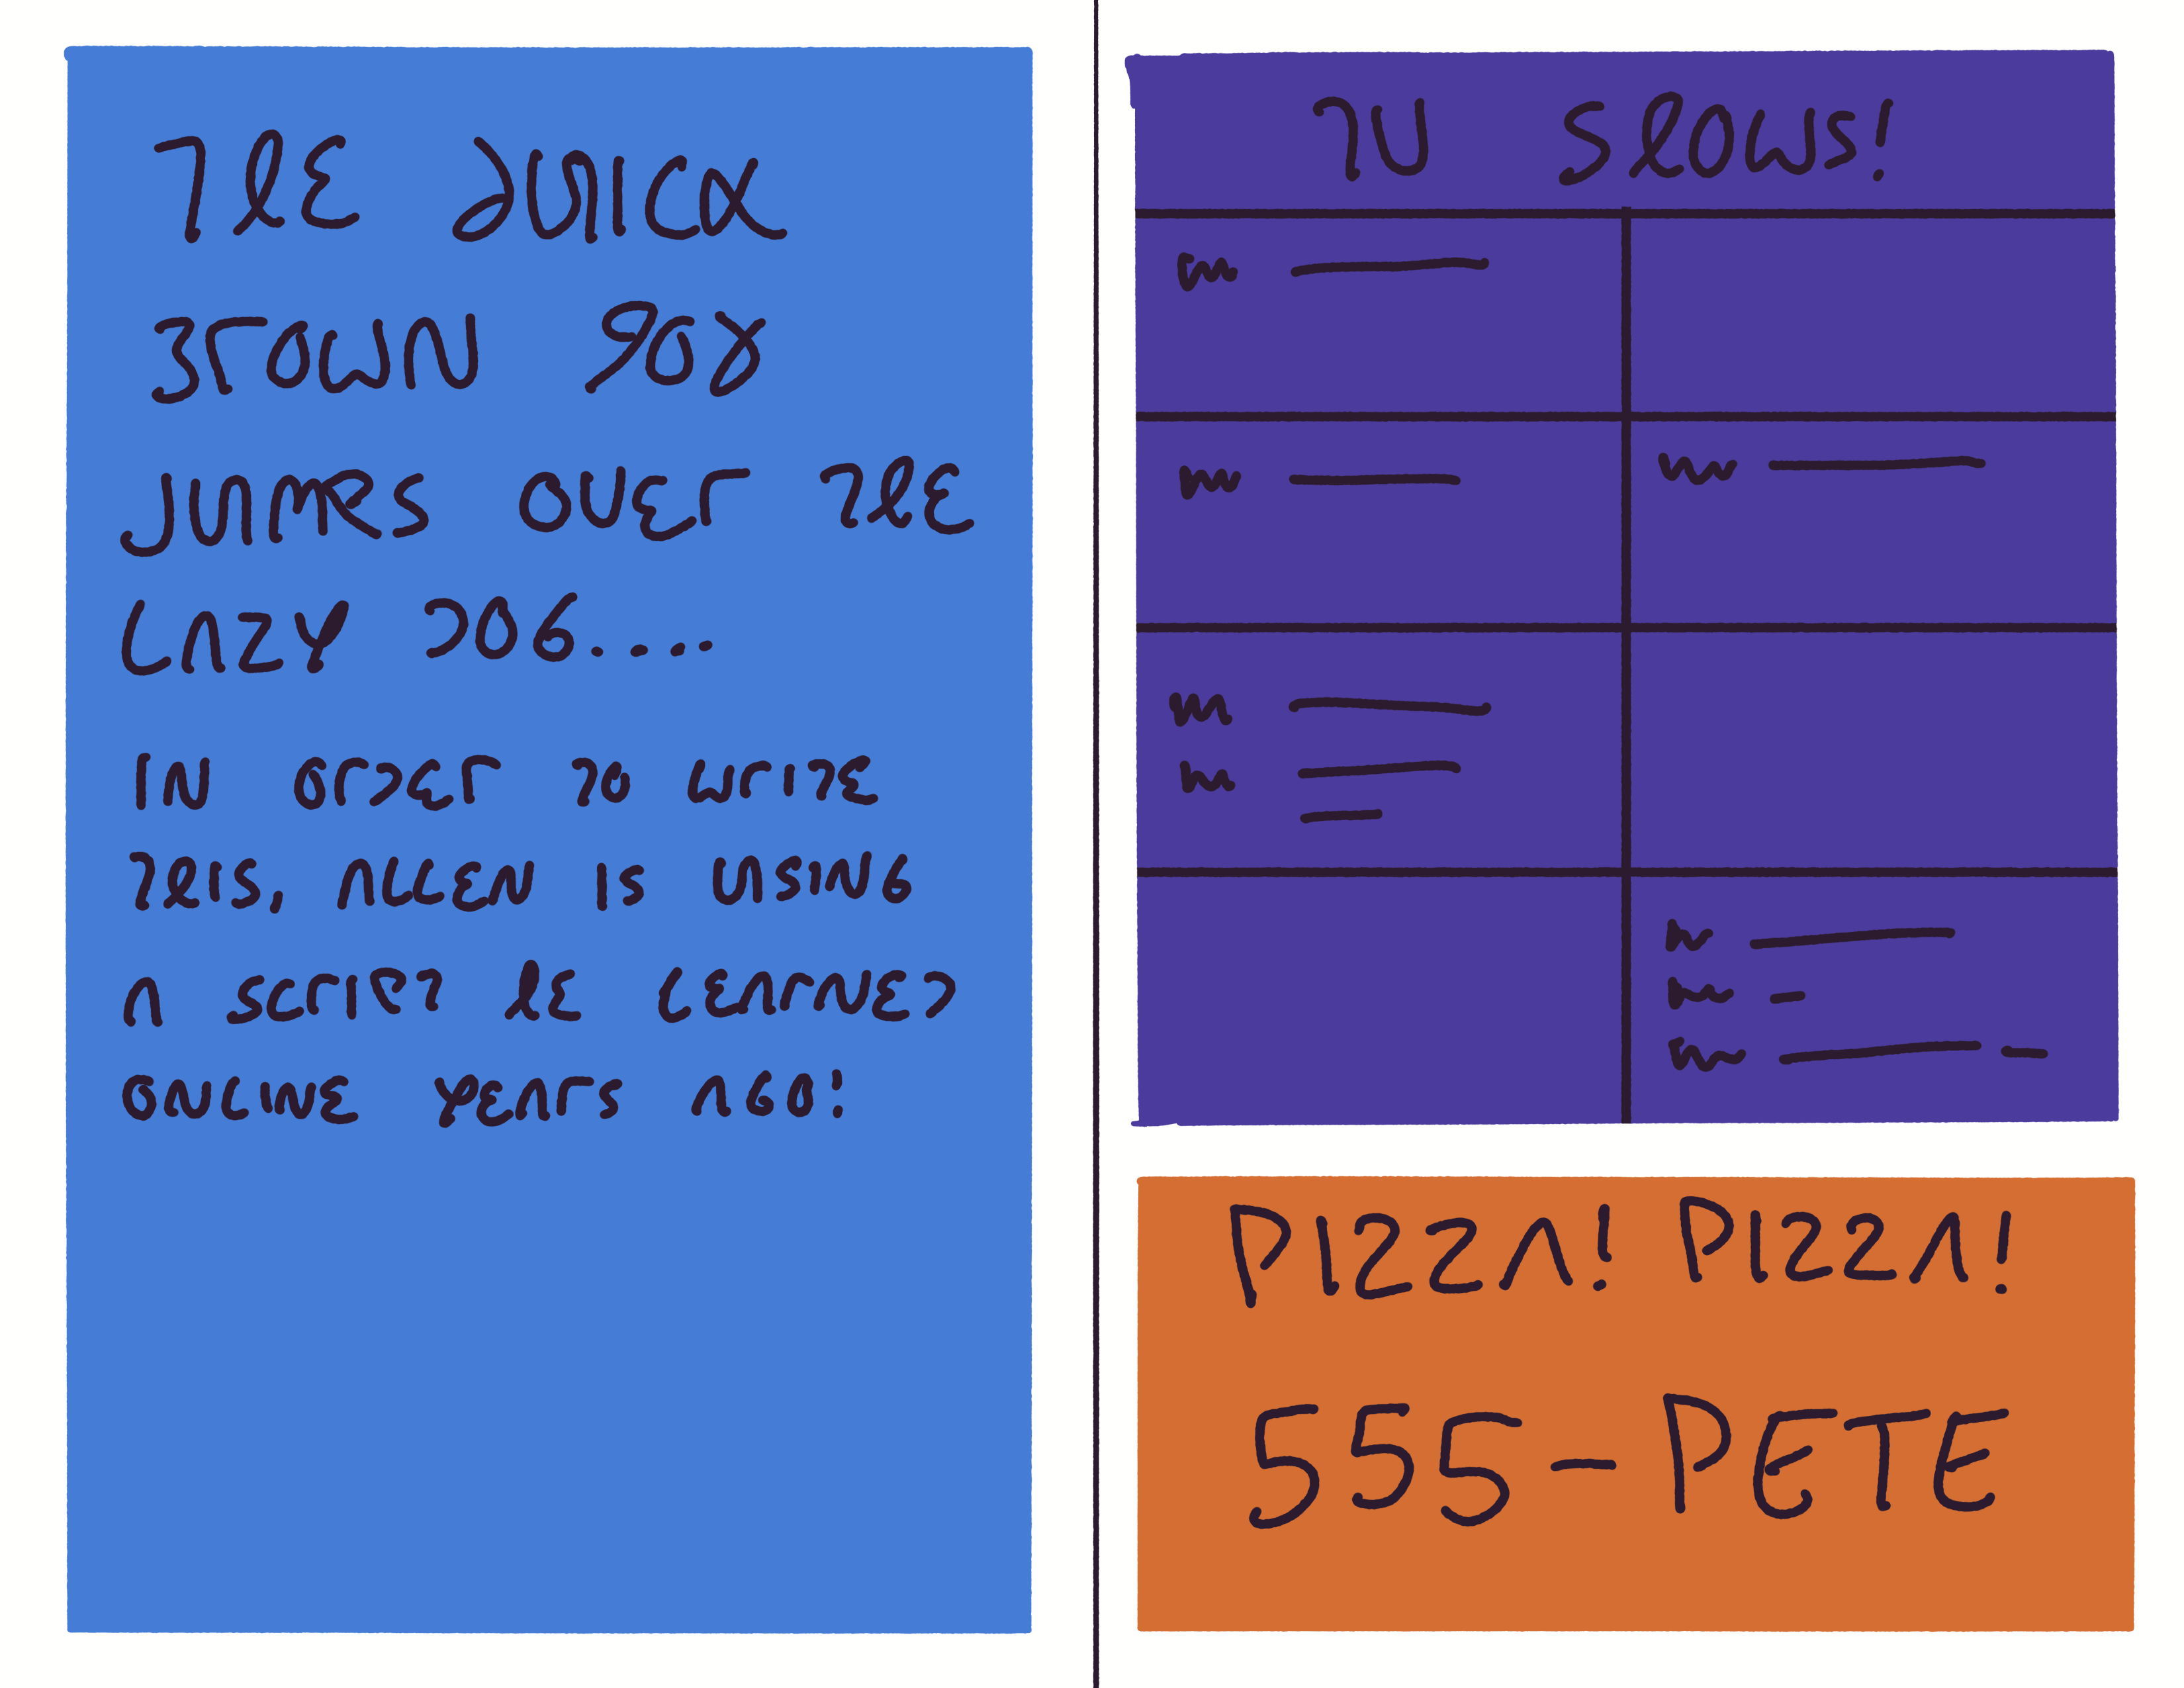 THE QUICK
BROWN FOX
JUMPS OVER THE
LAZY DOG....
IN ORDER TO WRITE
THIS, ALLEN IS USING
A SCRIPT HE LEARNED
ONLINE YEARS AGO!
TV SHOWS!
PIZZA! PIZZA!
555-PETE